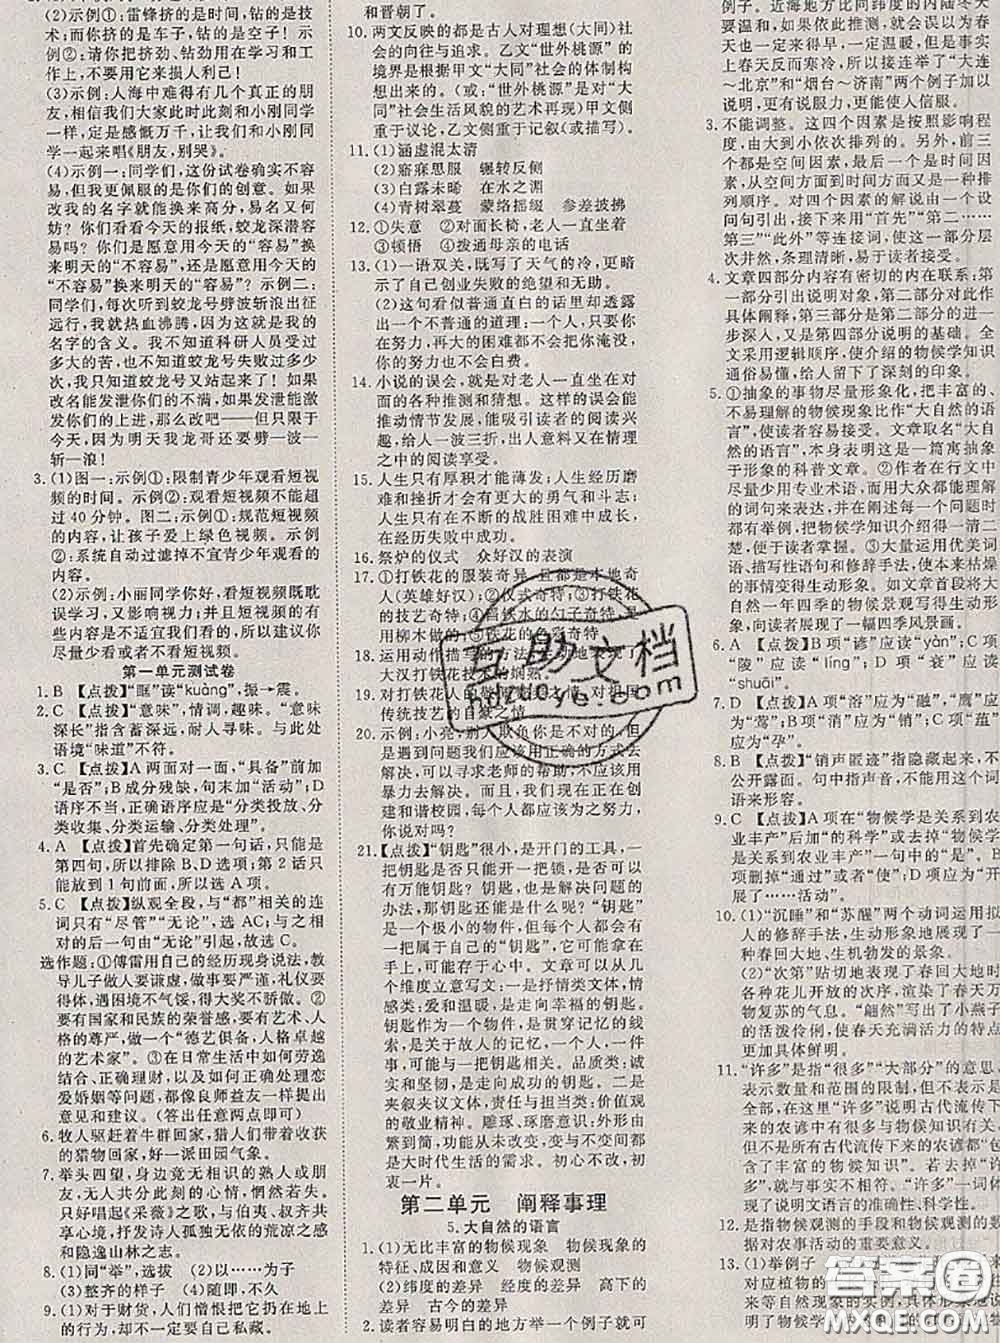 (2)示例①:雷锋挤的是时间,钻的是技
术;而你挤的是车子,钻的是空子! 示
例②:请你把挤劲、钻劲用在学习和工
作上,不要用它来损人利己!
(3)示例:人海中难得有几个真正的朋
友,相信我们大家此时此刻和小刚同学
一样,定是感慨万千,让我们和小刚同学
一起来唱《朋友,别哭》。
(4)示例一:同学们,这份试卷确实不容
易,但我更佩服的是你们的创意。如果
改我的名字就能换来高分,易名又何
妨? 你们看今天的报纸,蛟龙深潜容
易吗? 你们是愿意用今天的“容易”
换来明天的“不容易”,还是愿意用今天的
“不容易”换来明天的“容易”? 示例二:
同学们,每次听到蛟龙号劈波斩浪出征
远行,我就热血沸腾,因为这就是我的
名字的含义。我不知道科研人员受过
多大的苦,也不知道蛟龙号失败过多少
次,我只知道蛟龙号又站起来了! 如果
改名能发泄你们的不满,如果发泄能激
发你们的上进,那么改吧——但只限于
今天,因为明天我龙哥还要劈一波一
斩一浪!
3.(1)图一:示例①:限制青少年观看短视
频的时间。示例②:观看短视频不能超
过40分钟。图二:示例①:规范短视频
的内容,让孩子爱上绿色视频。示例
②:系统自动过滤掉不宜青少年观看的
内容。
(2)示例:小丽同学你好,看短视频既耽
误学习,又影响视力。而且短视频的有
些内容是不适于我们看的,所以建议你
尽量少看或者不看短视频。
第一单元测试卷
1.B 【点拨】“眶”读“kuàng”,振→震。
2.C 【点拨】“意味”,情调,趣味。“意味
深长”指含蓄深远,耐人寻味。与此处
语境“味道”不符。
3.C 【点拨】A两面对一面,“具备”前加
“是否”;B成分残缺,句末加“活动”;D
语序不当,正确语序应是“分类投放、分
类收集、分类运输、分类处理”。
4.A 【点拨】首先确定第一句话,只能是
第四句,所以排除B、D选项;第2话只
能放到1前面,所以选A项。
5.C 【点拨】纵观全段,与“都”相关的连
词只有“尽管”“无论”,选AC;与之相
对的后一句由“无论”引起,故选C。
选作题:①傅雷用自己的经历现身说法,教
导儿子做人要谦虚,做事要严谨,礼仪要
得体,遇困境不气馁,得大奖不骄傲。②
要有国家和民族的荣辱感,要有艺术、人格
的尊严,做一个“德艺俱备,人格卓越
的艺术家”。③在日常生活中如何劳逸
结合、正确理财,以及如何正确处理恋
爱婚姻等问题,都像良师益友一样提出
意见和建议。(答出任意两点即可)
6.牧人驱赶着牛群回家,猎人们带着收获
的猎物回家,好一派田园气象。
7.举头四望,身边竟无相识的熟人或朋
友,无人分享此刻的心情,惘然若失。
只好唱起《采薇》之歌,与伯夷、叔齐共
享心境,抒发诗人孤独无依的荒凉之感
和隐逸山林之志。
8.(1)同“举”,选拔 (2)以……为子
(3)整齐的样子 (4)随即,不久
9.(1)对于财货,人们憎恨把它扔在地上
的行为,却不一定要自己私藏。
和晋朝了。
10.两文反映的都是古人对理想(大同)社
会的向往与追求。乙文“世外桃源”的
境界是根据甲文“大同”社会的体制构
想出来的。(或:“世外桃源”是对“大
同”社会生活风貌的艺术再现)甲文侧
重于议论,乙文侧重于记叙(或描写)。
11.(1)涵虚混太清
(2)寤寐思服 辗转反侧
(3)白露未晞 在水之湄
(4)青树翠蔓 蒙络摇缀 参差披拂
12.①失意 ②对面长椅,老人一直坐着
③顿悟 ④拨通母亲的电话
13.(1)一语双关,既写了天气的冷,更暗
示了自己创业失败的绝望和无助。
(2)这句看似普通直白的话里却透露
出一个不普通的道理:一个人,只要还
在努力,再大的困难都不会把他打倒,
再大的不幸都不会白费。
14.小说的误会,就是对老人一直坐在对
面的各种推测和猜想。这样的误会能
推动情节发展,能吸引读者的阅读兴
趣,给人一波三折,出人意料又在情理
之中的阅读享受。
15.人生只有厚积才能薄发;人生经历磨
难和挫折才会有更大的勇气和斗志;
人生只有在不断的战胜困难中成长,
在经历失败中成功。
16.祭炉的仪式 众好汉的表演
17.①打铁花的服装奇异,且都是本地奇
人(英雄好汉);②仪式奇特;③打铁花
的技艺奇特;④舀铁水的勺子奇特,是
用柳木做的;⑤铁花的色彩奇特
18.运用动作描写的方法,生动地
大对打铁花技艺的
19.对打铁花人的 之情,对祖国
传统技艺的自豪之情
20.示例:小亮,别人欺负你是不对的,但
是遇到问题我们应该用正确的方式去
解决,可以寻求老师的帮助,不应该用
暴力去解决。而且我们现在正在创
建和谐校园,每个人都应该为之努力,
你说对吗?
21.【点拨】“钥匙”很小,是开门的工具,一
把钥匙总能打开一把锁,可是世界上可
有万能钥匙? 钥匙,也是解决问题的
办法,那万能钥匙又是什么呢?“钥匙”
是一个极小的物件,但生活中每个人都
拥有属于自己的“钥匙”,有有形的,有
无形的,有实的,有虚的。文章可以从几
个维度立意写文:一是抒情类文体,情
感类:爱和温暖,是走向幸福的钥匙。
钥匙作为一个物件,是贯穿记忆的线
索,是关于故人的记忆,一个人,一件
事,可能与一把钥匙相关。品质类:诚
实和坚韧,是走向成功的钥匙。二是
夹叙夹议文体,责任与担当类:价值观
的敬业精神。雕琢、琢磨意识:外形由
繁到简,功能从未改变,变与不变间都
是大时代生活的需求。初心不改,初
衷一片。
第二单元 阐释事理
5.大自然的语言
1.(1)无比丰富的物候现象 物候现象的
特征、成因和意义 物候观测
(2)纬度的差异 经度的差异 高下的
差异 古今的差异
2.读者容易明白的地方举一个例子就可
例子。近海地方比同纬度的内陆冬天
要温和,如果依此推测,就会以为春天
也一定来得早,一定温暖,但是实际
上春天反而寒冷,所以接连举了“大连
～北京”和“烟台～济南”两个例子加以
说明,更有说服力,更能使人信服。
3.不能调整。这四个因素是按照影响程
度,由大到小依次排列的。另外,前三
个都是空间因素,最后一个是时间因素,
从空间方面到时间方面,又是一种排
列顺序。对四个因素的解说由一个设
问句引出,接下来用“首先”“第二……
第三”“此外”等连接词,使这一部分层
次井然,条理清晰,易于读者接受。
4.文章四部分内容有密切的内在联系:第
一部分引出说明对象,第二部分对此作
具体阐释,第三部分是第二部分的进一
步深入,又是第四部分说明的基础。全
文采用逻辑顺序,使介绍的物候学知识
通俗易懂,给人留下了深刻的印象。
5.①抽象的事物尽量形象化,把丰富的、
不易理解的物候现象比作“大自然的语
言”,使读者容易接受。文章取名“大自
然的语言”,本身就是一篇寓抽象
于形象的科普文章。②作者在行文中
尽量少用专业术语,而用大众都能理解
的词句来表达,而且在说明每一个问题时
都有举例,把物候学知识介绍得具体,
便于读者掌握。③大量运用优美词
语、描写性语句和修辞手法,使本来枯燥
的事情变得生动形象。如文章首段将大
自然一年四季的物候景观写得生动形象,
向大家展现了一幅四季风景画。
6.A 【点拨】B项“谚”应读“yàn”;C项
“陵”应读“líng”;D项“衰”应读
“shuāi”。
7.D 【点拨】A项“溶”应为“融”,“鹰”应
为“莺”;B项“消”应为“销”;C项“蕴”
应为“孕”。
8.B 【点拨】“销声匿迹”指隐藏起来,不
公开露面。句中指声音,不能用此词
语来形容。
9.C 【点拨】A项在“物候学是关系到农
业丰产”后加“的科学”或去掉“物候学
是关系到农业丰产”一句中的“是”。B项
删掉“通过”或者“使”。D项应为“开
展了……活动”。
10.(1)“沉睡”和“苏醒”两个动词运用拟
人的修辞手法,生动形象地展现了一
种春回大地、生机勃发的景象。
(2)“次第”贴切地表现了春回大地时
各种花儿开放的次序,渲染了春天万
物复苏的气息。“翩然”写出了小燕子
的活泼伶俐,使春天充满活力的特点
更加具体鲜明。
11.“许多”是指“很多”“大部分”的意思,
表示数量和范围的限制,但不是指
全部,在这里“许多”说明古代流传下
来的农谚中有很多与物候知识有关,
但不是所有古代流传下来的农谚都“包
含了丰富的物候知识”。若去掉“许多”,
与事实不符,“许多”一词
体现了说明文语言的准确性、科学性。
12.是指物候观测的手段和物候观测的数
据对农事活动的重要意义。
13.(1)举例子
对应植物的
来等自然现象的实例,具体形象地
互助文档
huzuoye.com
答案圈
MXQE.COM